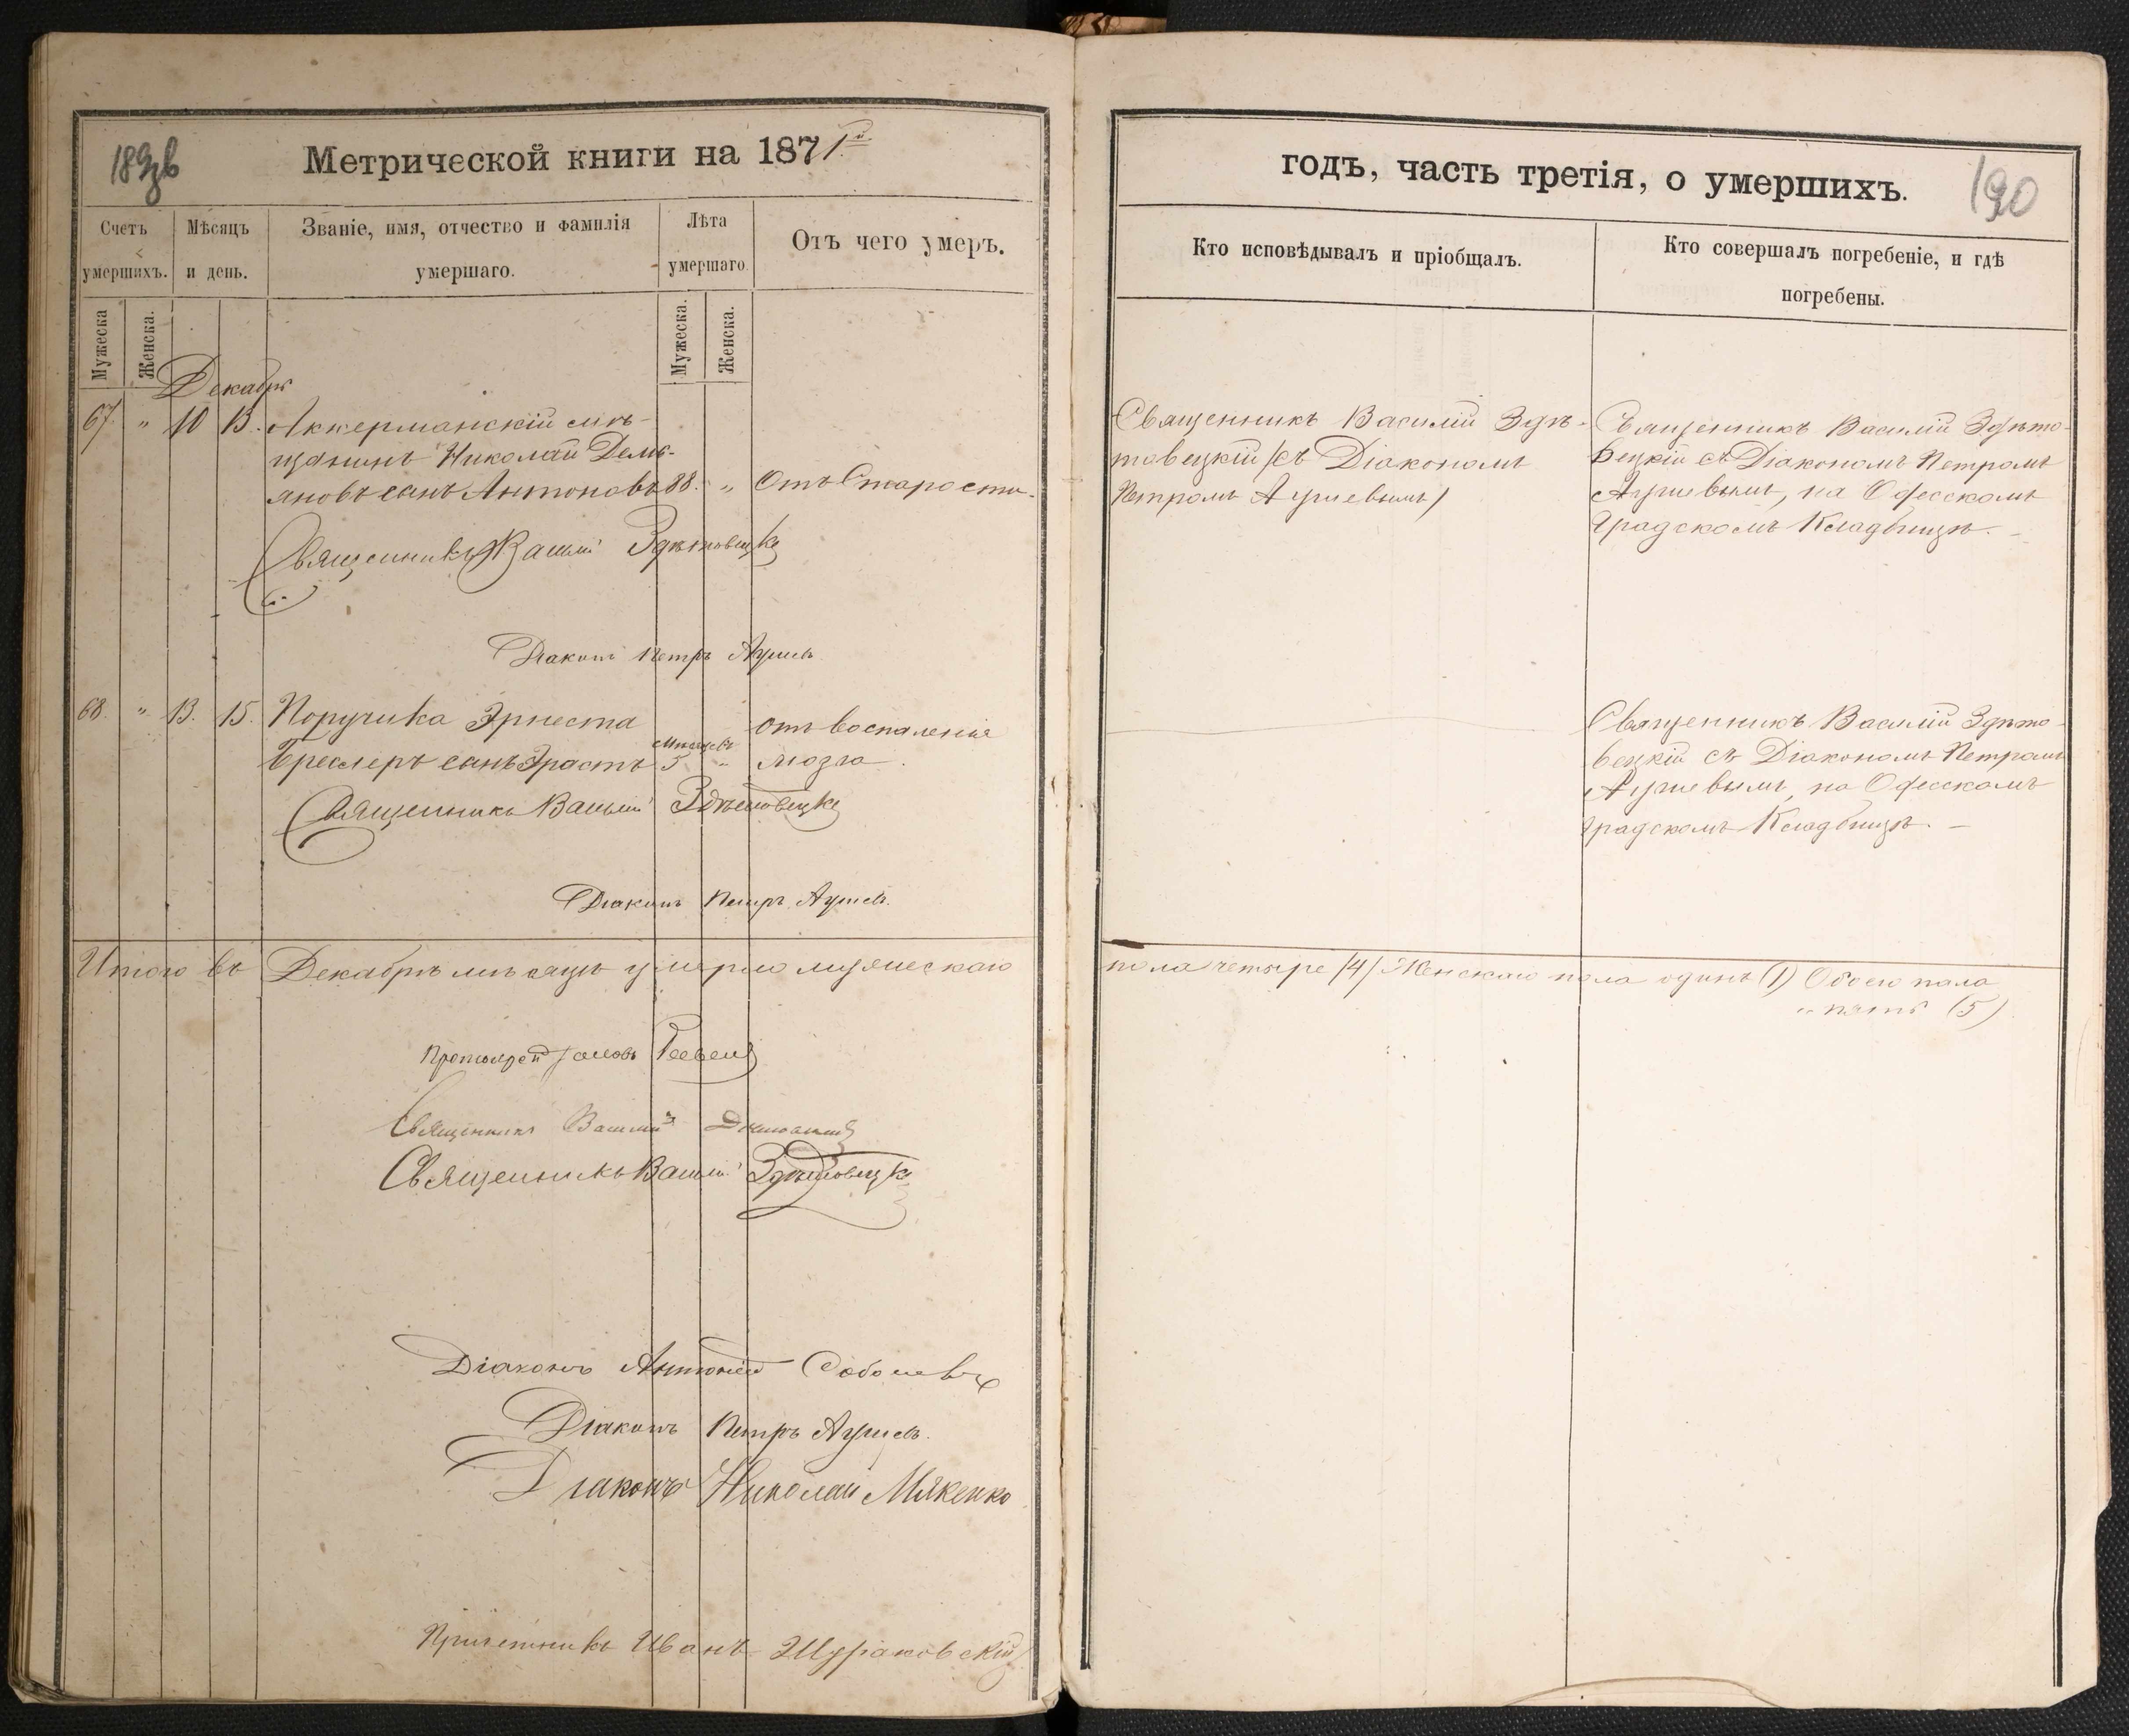 189 зв
Метрической книги на 1871й.
Счетъ умершихъ.
Мѣсяцъ и день.
Званіе, имя, отчество и фамилія умершаго.
Лѣта умершаго.
Отъ чего умеръ.
Мужеска
Женска.
Мужеска.
Женска.
Декабрь
67. " 10 13. Аккерманскій мѣ-
щанинъ Николай Демь-
яновъ сынъ Антоновъ 88. " Отъ Старости.
Священникъ Василій Здѣтовецкій
Діаконъ Петръ Ауліевъ
68. " 13. 15. Поручика Эрнеста Отъ воспаленія
Мѣсяцевъ
Бреслеръ сынъ Эрастъ 5 " мозга.
Священникъ Василій Здѣтовецкій
Діаконъ Петръ Ауліевъ.
Итого въ Декабрѣ мѣсяцѣ умерло мужескаго
Протоіерей
Священникъ Василій
Священникъ Василій Здѣтовецкій
Діаконъ Антоній Соболевъ
Діаконъ Петръ Ауліевъ.
Діаконъ Николай Мякенко
Причетникъ Иванъ Шураковскій
годъ, часть третія, о умершихъ.
190
Кто исповѣдывалъ и пріобщалъ.
Кто совершалъ погребеніе, и гдѣ
погребены.
Священникъ Василій Здѣ-
товецкій /съ Діакономъ
Петромъ Ауліевымъ/
Священникъ Василій Здѣто-
вецкій съ Діакономъ Петромъ
Ауліевымъ, на Одесскомъ
Градскомъ Кладбищѣ. -
Священникъ Василій Здѣто-
вецкій съ Діакономъ Петромъ
Ауліевымъ, на Одесскомъ
градскомъ Кладбищѣ. -
пола четыре /4/ Женскаго пола одинъ (1) Обоего пола
" пять (5)